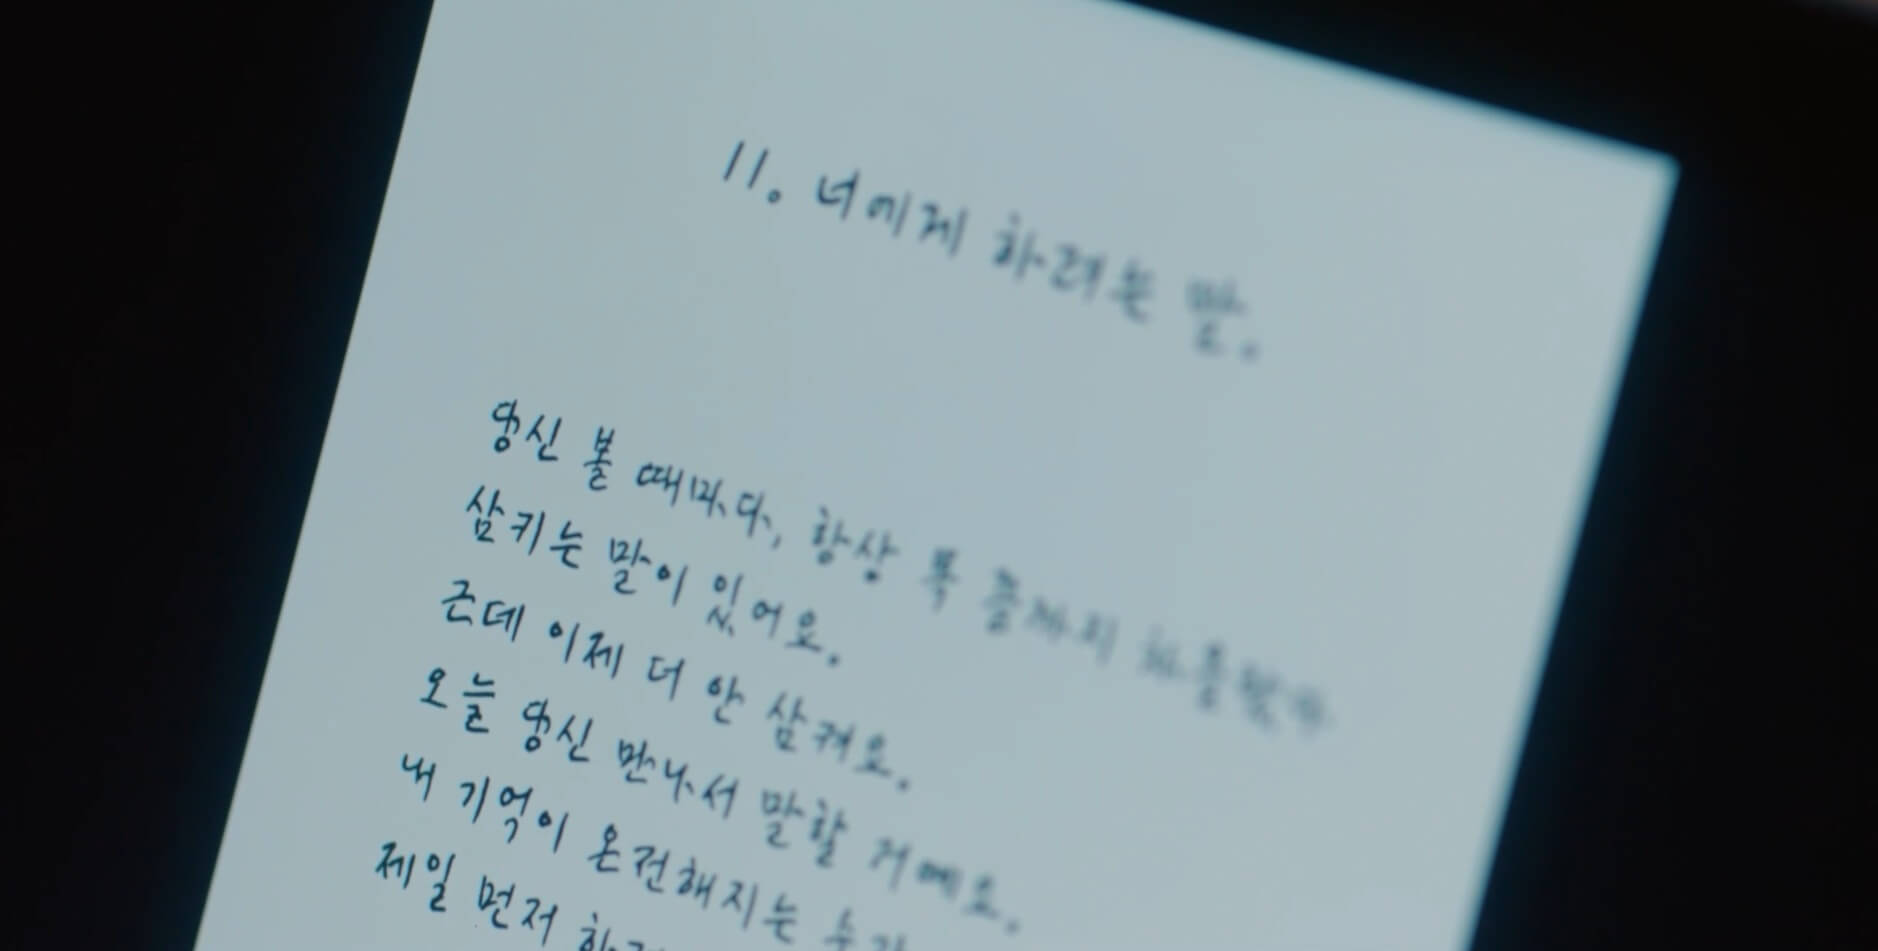 11. 너에게 하려는 말.
당신 볼 때마다, 항상 목 끝까지 차올랐다
삼키는 말이 있어요.
근데 이제 더 안 삼켜요.
오늘 당신 만나서 말할 거예요.
내 기억이 온전해지는 순간
제일 먼저